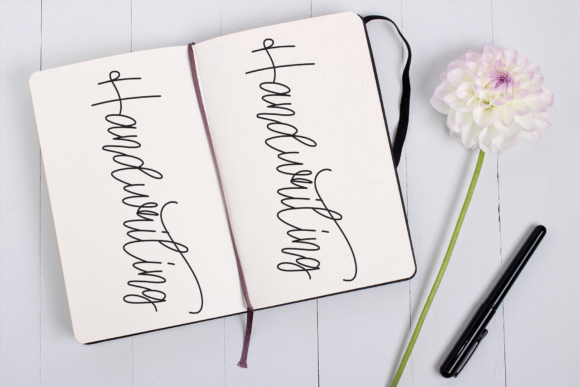 Handwriting
Handwriting